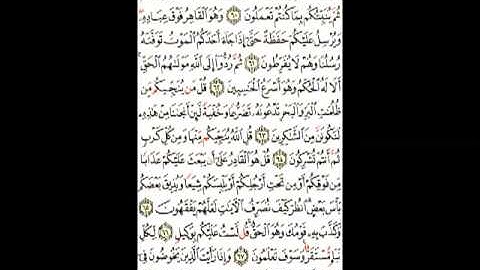 ثُمَّ يُنَبِّئُكُم بِمَا كُنتُمْ تَعْمَلُونَ ٦٠ وَهُوَ الْقَاهِرُ فَوْقَ عِبَادِهِ
وَيُرْسِلُ عَلَيْكُمْ حَفَظَةً حَتَّىٰ إِذَا جَاءَ أَحَدَكُمُ الْمَوْتُ تَوَفَّتْهُ
رُسُلُنَا وَهُمْ لَا يُفَرِّطُونَ ٦١ ثُمَّ رُدُّوا إِلَى اللَّهِ مَوْلَىٰهُمُ الْحَقِّ
أَلَا لَهُ الْحُكْمُ وَهُوَ أَسْرَعُ الْحَٰسِبِينَ ٦٢ قُلْ مَن يُنَجِّيكُم مِّن
ظُلُمَٰتِ الْبَرِّ وَالْبَحْرِ تَدْعُونَهُ تَضَرُّعًا وَخُفْيَةً لَّئِنْ أَنجَىٰنَا مِنْ هَٰذِهِ
لَنَكُونَنَّ مِنَ الشَّٰكِرِينَ ٦٣ قُلِ اللَّهُ يُنَجِّيكُم مِّنْهَا وَمِن كُلِّ كَرْبٍ
ثُمَّ أَنتُمْ تُشْرِكُونَ ٦٤ قُلْ هُوَ الْقَادِرُ عَلَىٰ أَن يَبْعَثَ عَلَيْكُمْ عَذَابًا
مِّن فَوْقِكُمْ أَوْ مِن تَحْتِ أَرْجُلِكُمْ أَوْ يَلْبِسَكُمْ شِيَعًا وَيُذِيقَ بَعْضَكُم
بَأْسَ بَعْضٍ انظُرْ كَيْفَ نُصَرِّفُ الْآيَٰتِ لَعَلَّهُمْ يَفْقَهُونَ ٦٥
وَكَذَّبَ بِهِ قَوْمُكَ وَهُوَ الْحَقُّ قُل لَّسْتُ عَلَيْكُم بِوَكِيلٍ ٦٦ لِّكُلِّ
نَبَإٍ مُّسْتَقَرٌّ وَسَوْفَ تَعْلَمُونَ ٦٧ وَإِذَا رَأَيْتَ الَّذِينَ يَخُوضُونَ فِي